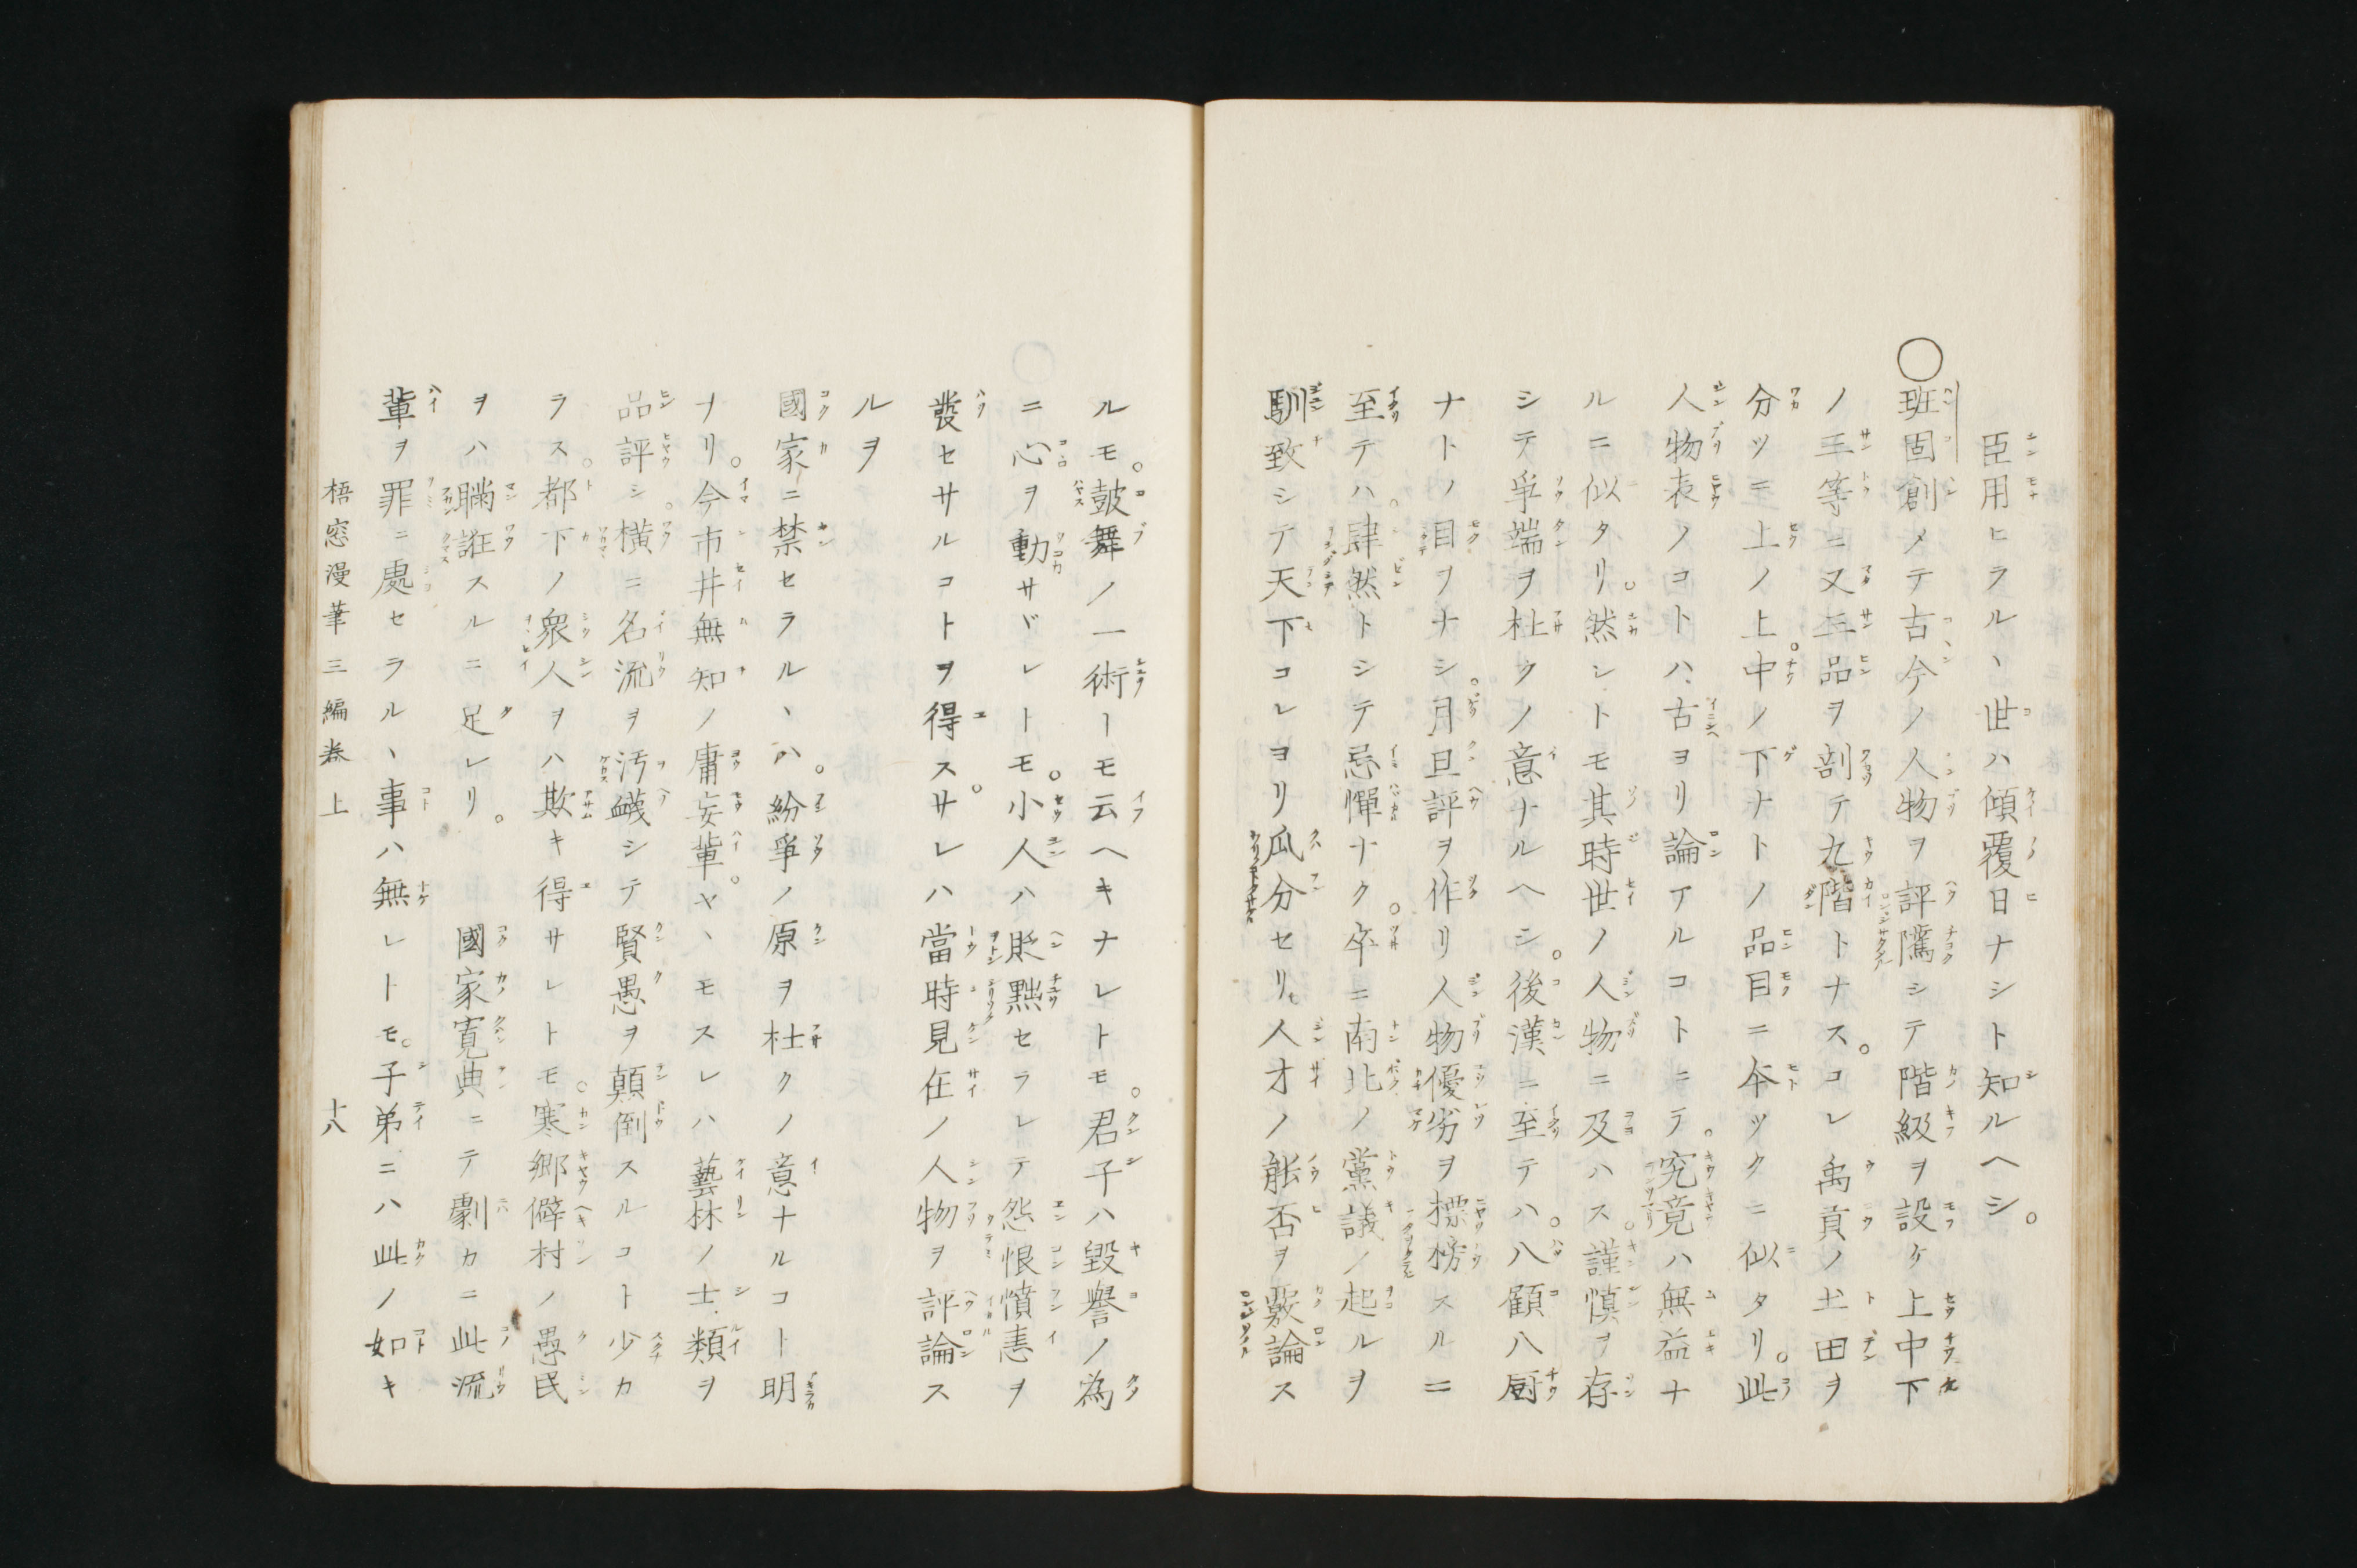 臣用ヒラルヽ世ハ傾覆日ナシト知ルヘシ。
○班固創メテ古今ノ人物ヲ評隲シテ階級ヲ設ケ上中下
ノ三等ニ又三品ヲ剖テ九階トナス。コレ禹貢ノ土田ヲ
分ツニ上ノ上。中ノ下ナトノ品目ニ本ツクニ似タリ。此
人物表ノコトハ、古ヨリ論アルコトニテ。究竟ハ無益ナ
ルニ似タリ。然レトモ其時世ノ人物ニ及ハス。謹慎ヲ存
シテ爭端ヲ杜クノ意ナルヘシ。後漢ニ至テハ。八顧八厨
ナトノ目ヲナシ。月旦評ヲ作リ人物優劣ヲ標榜スルニ
至テハ。肆然トシテ忌憚ナク。卒ニ南北ノ黨議ノ起ルヲ
馴致シテ天下コレヨリ瓜分セリ。人才ノ能否ヲ覈論ス
ルモ。鼓舞ノ一術トモ云ヘキナレトモ。君子ハ毀譽ノ為
ニ心ヲ動サヾレトモ。小人ハ貶黜セラレテ怨恨憤恚ヲ
發セサルコトヲ得ス。サレハ當時見在ノ人物ヲ評論ス
ルヲ
國家ニ禁セラルヽハ。紛爭ノ原ヲ杜クノ意ナルコト明
ナリ。今市井無知ノ庸妄輩。ヤヽモスレハ藝林ノ士類ヲ
品評シ。橫ニ名流ヲ汚衊シテ賢愚ヲ顛倒スルコト少カ
ラス。都下ノ衆人ヲハ欺キ得サレトモ。寒鄉僻村ノ愚民
ヲハ瞞誑スルニ足レリ。國家寛典ニテ劇カニ此流
輩ヲ罪ニ處セラルヽ事ハ無レトモ。子弟ニハ此ノ如キ
梧窓漫筆三編巻上 十八